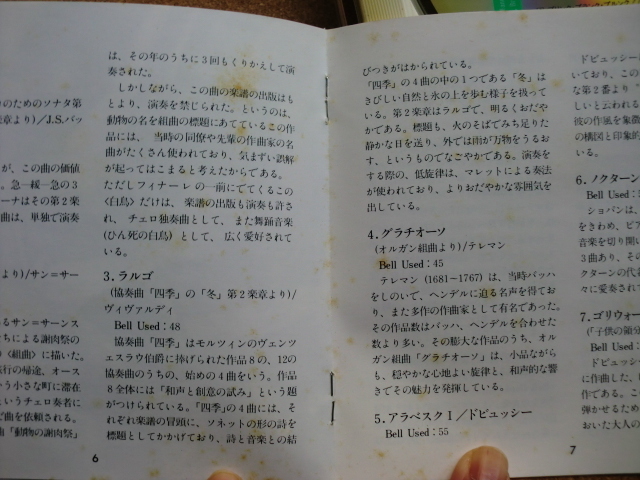 のためのソナタ第
楽章より)/J.S.バッ
が、この曲の価値
。急一緩一急の3
ーナはその第2楽
曲は、単独で演奏
より)/サン=サー
るサン=サーンス
ちによる謝肉祭の
《組曲》に描いた。
旅行の帰途、オース
う小さな町に滞在
というチェロ奏者に
ど曲を依頼される。
曲「動物の謝肉祭」
は、その年のうちに3回もくりかえして演
奏された。
しかしながら、この曲の楽譜の出版はも
とより、演奏を禁じられた。というのは、
動物の名を組曲の標題にあてているこの作
品には、当時の同僚や先輩の作曲家の名
曲がたくさん使われており、気まずい誤解
が起ってはこまると考えたからである。
ただしフィナーレの一前にでてくるこの
《白鳥》だけは、楽譜の出版も演奏も許さ
れ、チェロ独奏曲として、また舞踊音楽
《ひん死の白鳥》として、広く愛好されて
いる。
3.ラルゴ
(協奏曲「四季」の「冬」第2楽章より)/
ヴィヴァルディ
Bell Used:48
協奏曲「四季」はモルツィンのヴェンツ
ェスラウ伯爵に捧げられた作品8の、12の
協奏曲のうちの、始めの4曲をいう。作品
8全体には「和声と創意の試み」という題
がつけられている。「四季」の4曲には、そ
れぞれ楽譜の冒頭に、ソネットの形の詩を
標題としてかかげており、詩と音楽との結
6
びつきがはかられている。
「四季」の4曲の中の1つである「冬」は
きびしい自然と氷の上を歩む様子を扱って
いる。第2楽章はラルゴで、明るくおだや
かである。標題も、火のそばでみち足りた
静かな日を送り、外では雨が万物をうるお
す、というものでなごやかである。演奏を
する際の、低旋律は、マレットによる奏法
が使われており、よりおだやかな雰囲気を
出している。
4.グラチオーソ
(オルガン組曲より)/テレマン
Bell Used:45
テレマン(1681〜1767)は、当時バッハ
をしのいで、ヘンデルに迫る名声を得てお
り、また多作の作曲家として有名であった。
その作品数はバッハ、ヘンデルを合わせた
数より多い。その膨大な作品のうち、オル
ガン組曲「グラチオーソ」は、小品ながら
も、穏やかな心地よい旋律と、和声的な響
きでその魅力を発揮している。
5.アラベスクI/ドビュッシー
Bell Used:55
ドビュッシー
いており、この
な第2番より
しいとおもわれる
彼の作風を象徴
の構図と印象的
いる。
6.ノクターン
Bell Used:
ショパンは、
をきわめ、ピア
音楽を切り開い
3曲あり、その
クターンの代表
々に愛奏されて
7.ゴリウォー
(「子供の領分
Bell Used:
ドビュッシー
に作曲した、
作である。こ
弾かせるため
おいた大人の
7